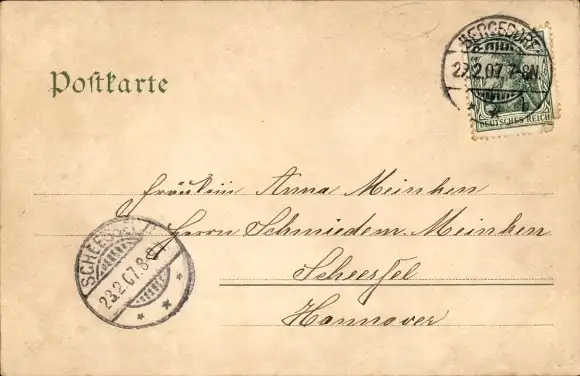 BERGEDORF
22.2.07.7-8N
DEUTSCHES REICH
Postkarte
Fräulein Anna Meinken
Herrn Schmiedem. Meinken
SCHEESSEL
23.2.07.8-9V
Scheeßel
Hannover